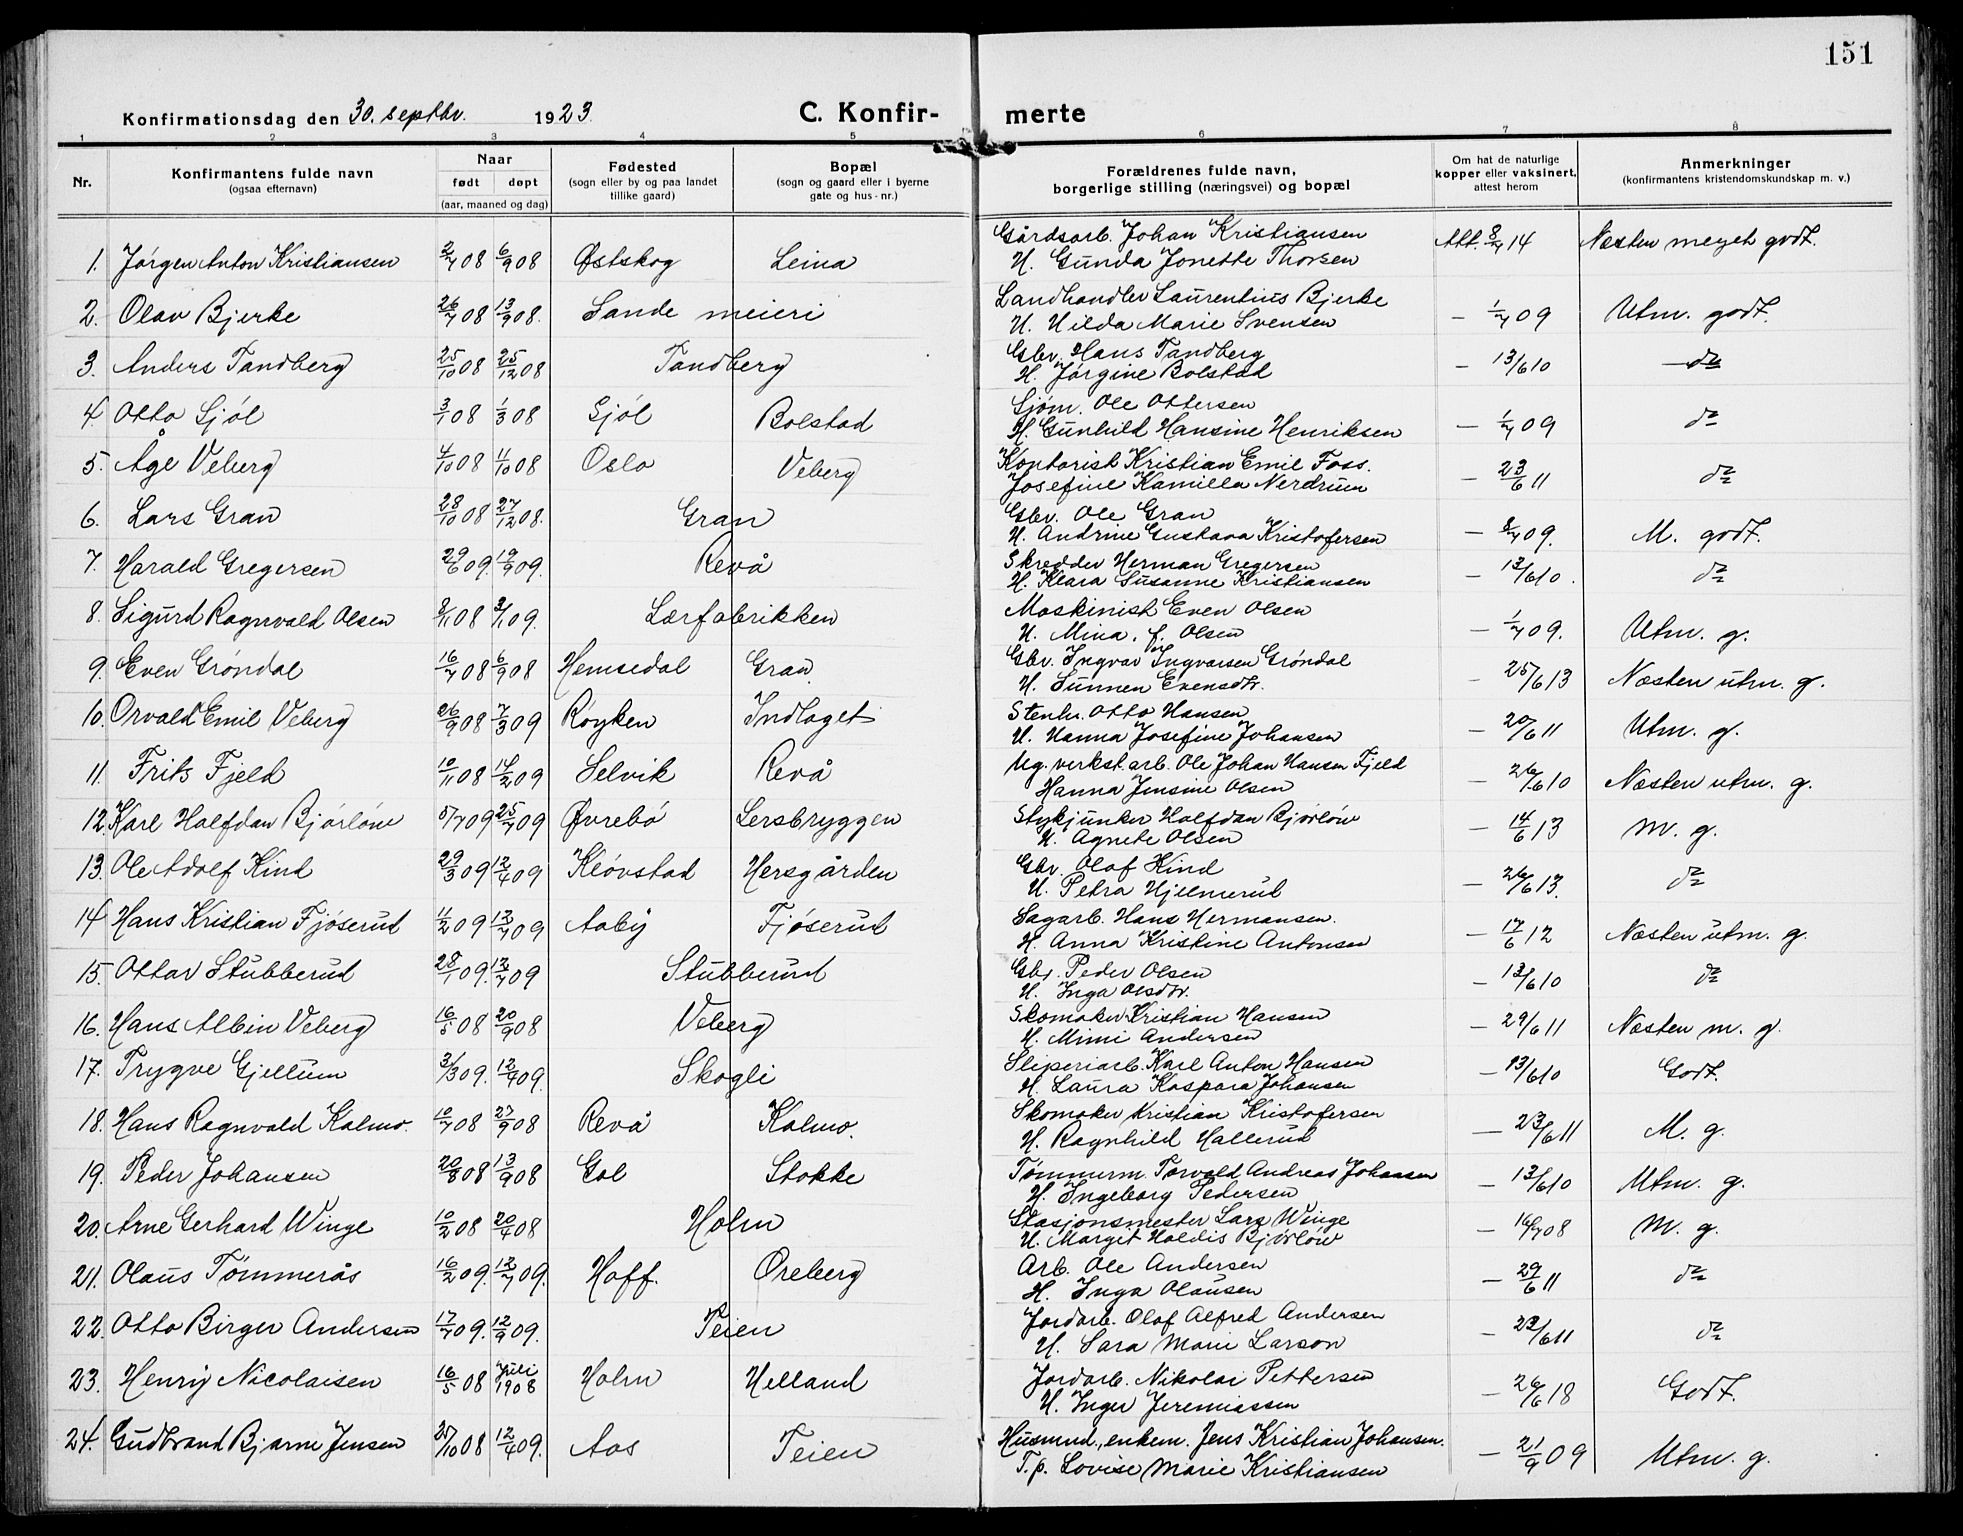 151
Konfirmationsdag den 30. septbr. 1923. C. Konfir- merte
1 2 3 4 5 6 7 8
Nr. Konfirmantens fulde navn (ogsaa efternavn) Naar født døpt (aar, maaned og dag) Fødested (sogn eller by og paa landet tillike gaard) Bopæl (sogn og gaard eller i byerne gate og hus-nr.) Forældrenes fulde navn, borgerlige stilling (næringsvei) og bopæl Om hat de naturlige kopper eller vaksinert, attest herom Anmerkninger (konfirmantens kristendomskundskap m. v.)
1. Jørgen Anton Kristiansen 2/7 08 6/9 08 Østskog Leina Gårdsarb. Johan Kristiansen Att. 8/7 14 Næsten meget godt.
H. Gunda Jonette Thorsen
2. Olav Bjerke 26/7 08 13/9 08. Sande meieri Landhandler Laurentius Bjerke – 1/7 09 Utm. godt.
H. Hilda Marie Svensen
3. Anders Tandberg 25/10 08 25/12 08 Tandberg Gbr. Hans Tandberg – 13/6 10 do
H. Jørgine Bolstad
4. Otto Sjøl 3/1 08 1/3 08 Sjøl Bolstad Sjøm. Ole Ottersen – 1/7 09 do
H. Gunhild Hansine Henriksen
5. Åge Veberg 4/10 08 11/10 08 Oslo Veberg Kontorist Kristian Emil Foss. – 23/6 11 do
Josefine Kamilla Nerdrum
6. Lars Gran 28/10 08 27/12 08. Gran Gbr. Ole Gran – 8/7 09. M. godt.
H. Andrine Gustava Kristofersen
7. Harald Gregersen 29/6 09. 19/9 09. Revå Skredder Herman Gregersen – 13/6 10. do
H. Klara Susanne Kristiansen
8. Sigurd Ragnvald Olsen 8/11 08 3/1 09. Lærfabrikken Maskinist Even Olsen – 1/7 09. Utm. g.
H. Mina, f. Olsen
9. Even Grøndal 16/7 08 6/9 08 Hemsedal Gran Gbr. Ingvar Ingvarsen Grøndal – 25/6 13 Næsten utm. g.
H. Sunnen Evensdtr.
10. Orvald Emil Veberg 26/9 08 7/3 09 Røyken Indlaget Stenh. Otto Hansen – 20/6 11 Utm. g.
H. Hanna Josefine Johansen
11. Frits Fjeld 10/11 08 14/2 09 Selvik Revå Ug. verkst.arb. Ole Johan Hansen Fjeld – 26/6 10 Næsten utm. g.
Hanna Jensine Olsen
12. Karl Halfdan Bjørløw 5/7 09 25/7 09 Øvrebö Lersbryggen Stykjunker Halfdan Bjørløw – 14/6 13 M. g.
H. Agnete Olsen
13. Ole Adolf Kind 29/3 09 12/4 09 Kløvstad Hersgården Gbr. Olaf Kind – 26/6 13. do
H. Petra Hjelmerud
14. Hans Kristian Fjøserud 11/2 09 12/7 09 Aaby Fjøserud Sagarb. Hans Hermansen. – 17/6 12 Næsten utm. g.
H. Anna Kristine Antonsen
15. Ottar Stubberud 28/1 09. 12/7 09 Stubberud Gbr. Peder Olsen – 13/6 10 do
H. Inga Olsdtr.
16. Hans Albin Veberg 16/5 08 20/9 08 Veberg Skomaker Kristian Hansen – 29/6 11 Næsten m. g.
H. Mimi Andersen
17. Trygve Gjellum 3/3 09. 12/4 09. Skogli Sliperiarb. Karl Anton Hansen – 13/6 10 Godt.
H. Laura Kaspara Johansen
18. Hans Ragnvald Kalmo. 10/7 08 27/9 08 Revå Kalmo. Skomaker Kristian Kristofersen – 23/6 11 M. g.
H. Ragnhild Hallerud
19. Peder Johansen 20/8 08 13/9 08 Gol Stokke Tømmerm. Torvald Andreas Johansen – 13/6 10 Utm. g.
H. Ingeborg Pedersen
20. Arne Gerhard Winge 10/2 08 20/4 08 Holm Stasjonsmester Lars Winge – 16/7 08 M. g.
H. Margit Haldis Bjørløw
21. Olaus Tømmerås 16/2 09. 12/7 09. Hoff. Øreberg Arb. Ole Andersen – 29/6 11 do
H. Inga Olausen
22. Otto Birger Andersen 17/7 09. 12/9 09. Teien Jordarb. Olaf Alfred Andersen – 23/6 11 do
H. Sara Marie Larson
23. Henry Nicolaisen 16/5 08 Juli 1908 Holm Helland Jordarb. Nikolai Pettersen – 26/6 18 Godt.
H. Inger Jeremiassen
24. Gudbrand Bjarne Jensen 25/10 08 12/4 09. Aas Teien Husmnd., enkem. Jens Kristian Johansen. – 21/9 09 Utm. g.
T.p. Lovise Marie Kristiansen